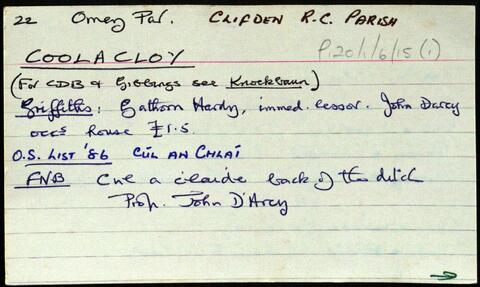 22 Omey Par. CLIFDEN R.C. PARISH
P120/1/6/15 (1)
COOLACLOY
(For CDB & Gibbings see Knockbaun)
Griffiths: Gathorn Hardy, immed. lessor. John Darcy
occs house £1.5.
O.S. LIST '86 CÚL AN CHLAÍ
FNB Cul a claide back of the ditch
Prop. John D'Arcy